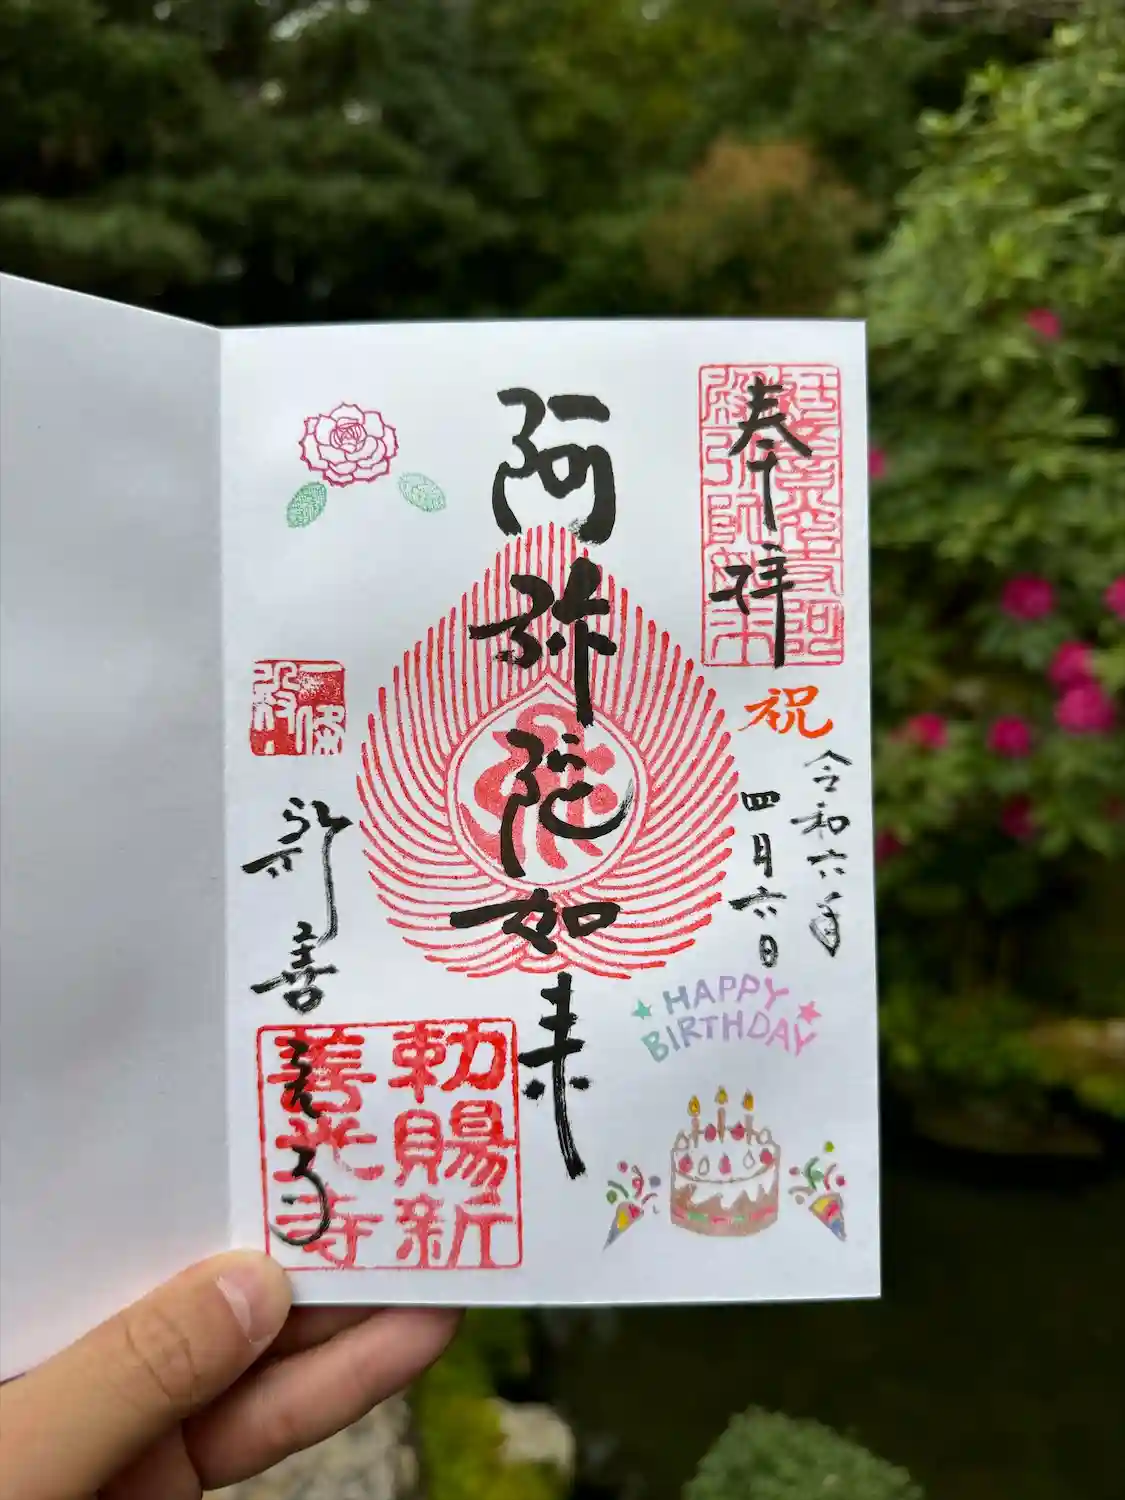 奉拝
祝
令和六年
四月六日
阿弥陀如来
新善光寺
勅賜新
善光寺
HAPPY
BIRTHDAY